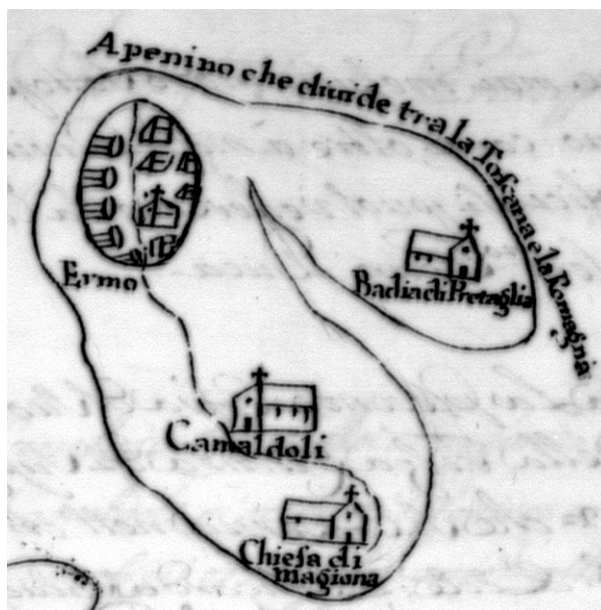 Apenino che diuide tra la Toscana e la Romagna
Ermo
Badia di Pretaglia
Camaldoli
Chiesa di
magiona